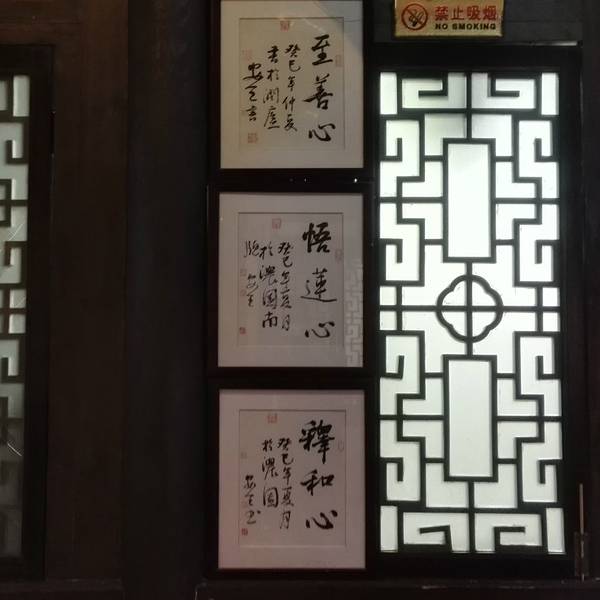 禁止吸烟
NO SMOKING
至善心
癸巳年仲夏
悟莲心
癸巳年夏月
於浓园南
釋和心
癸巳年夏月
於浓园